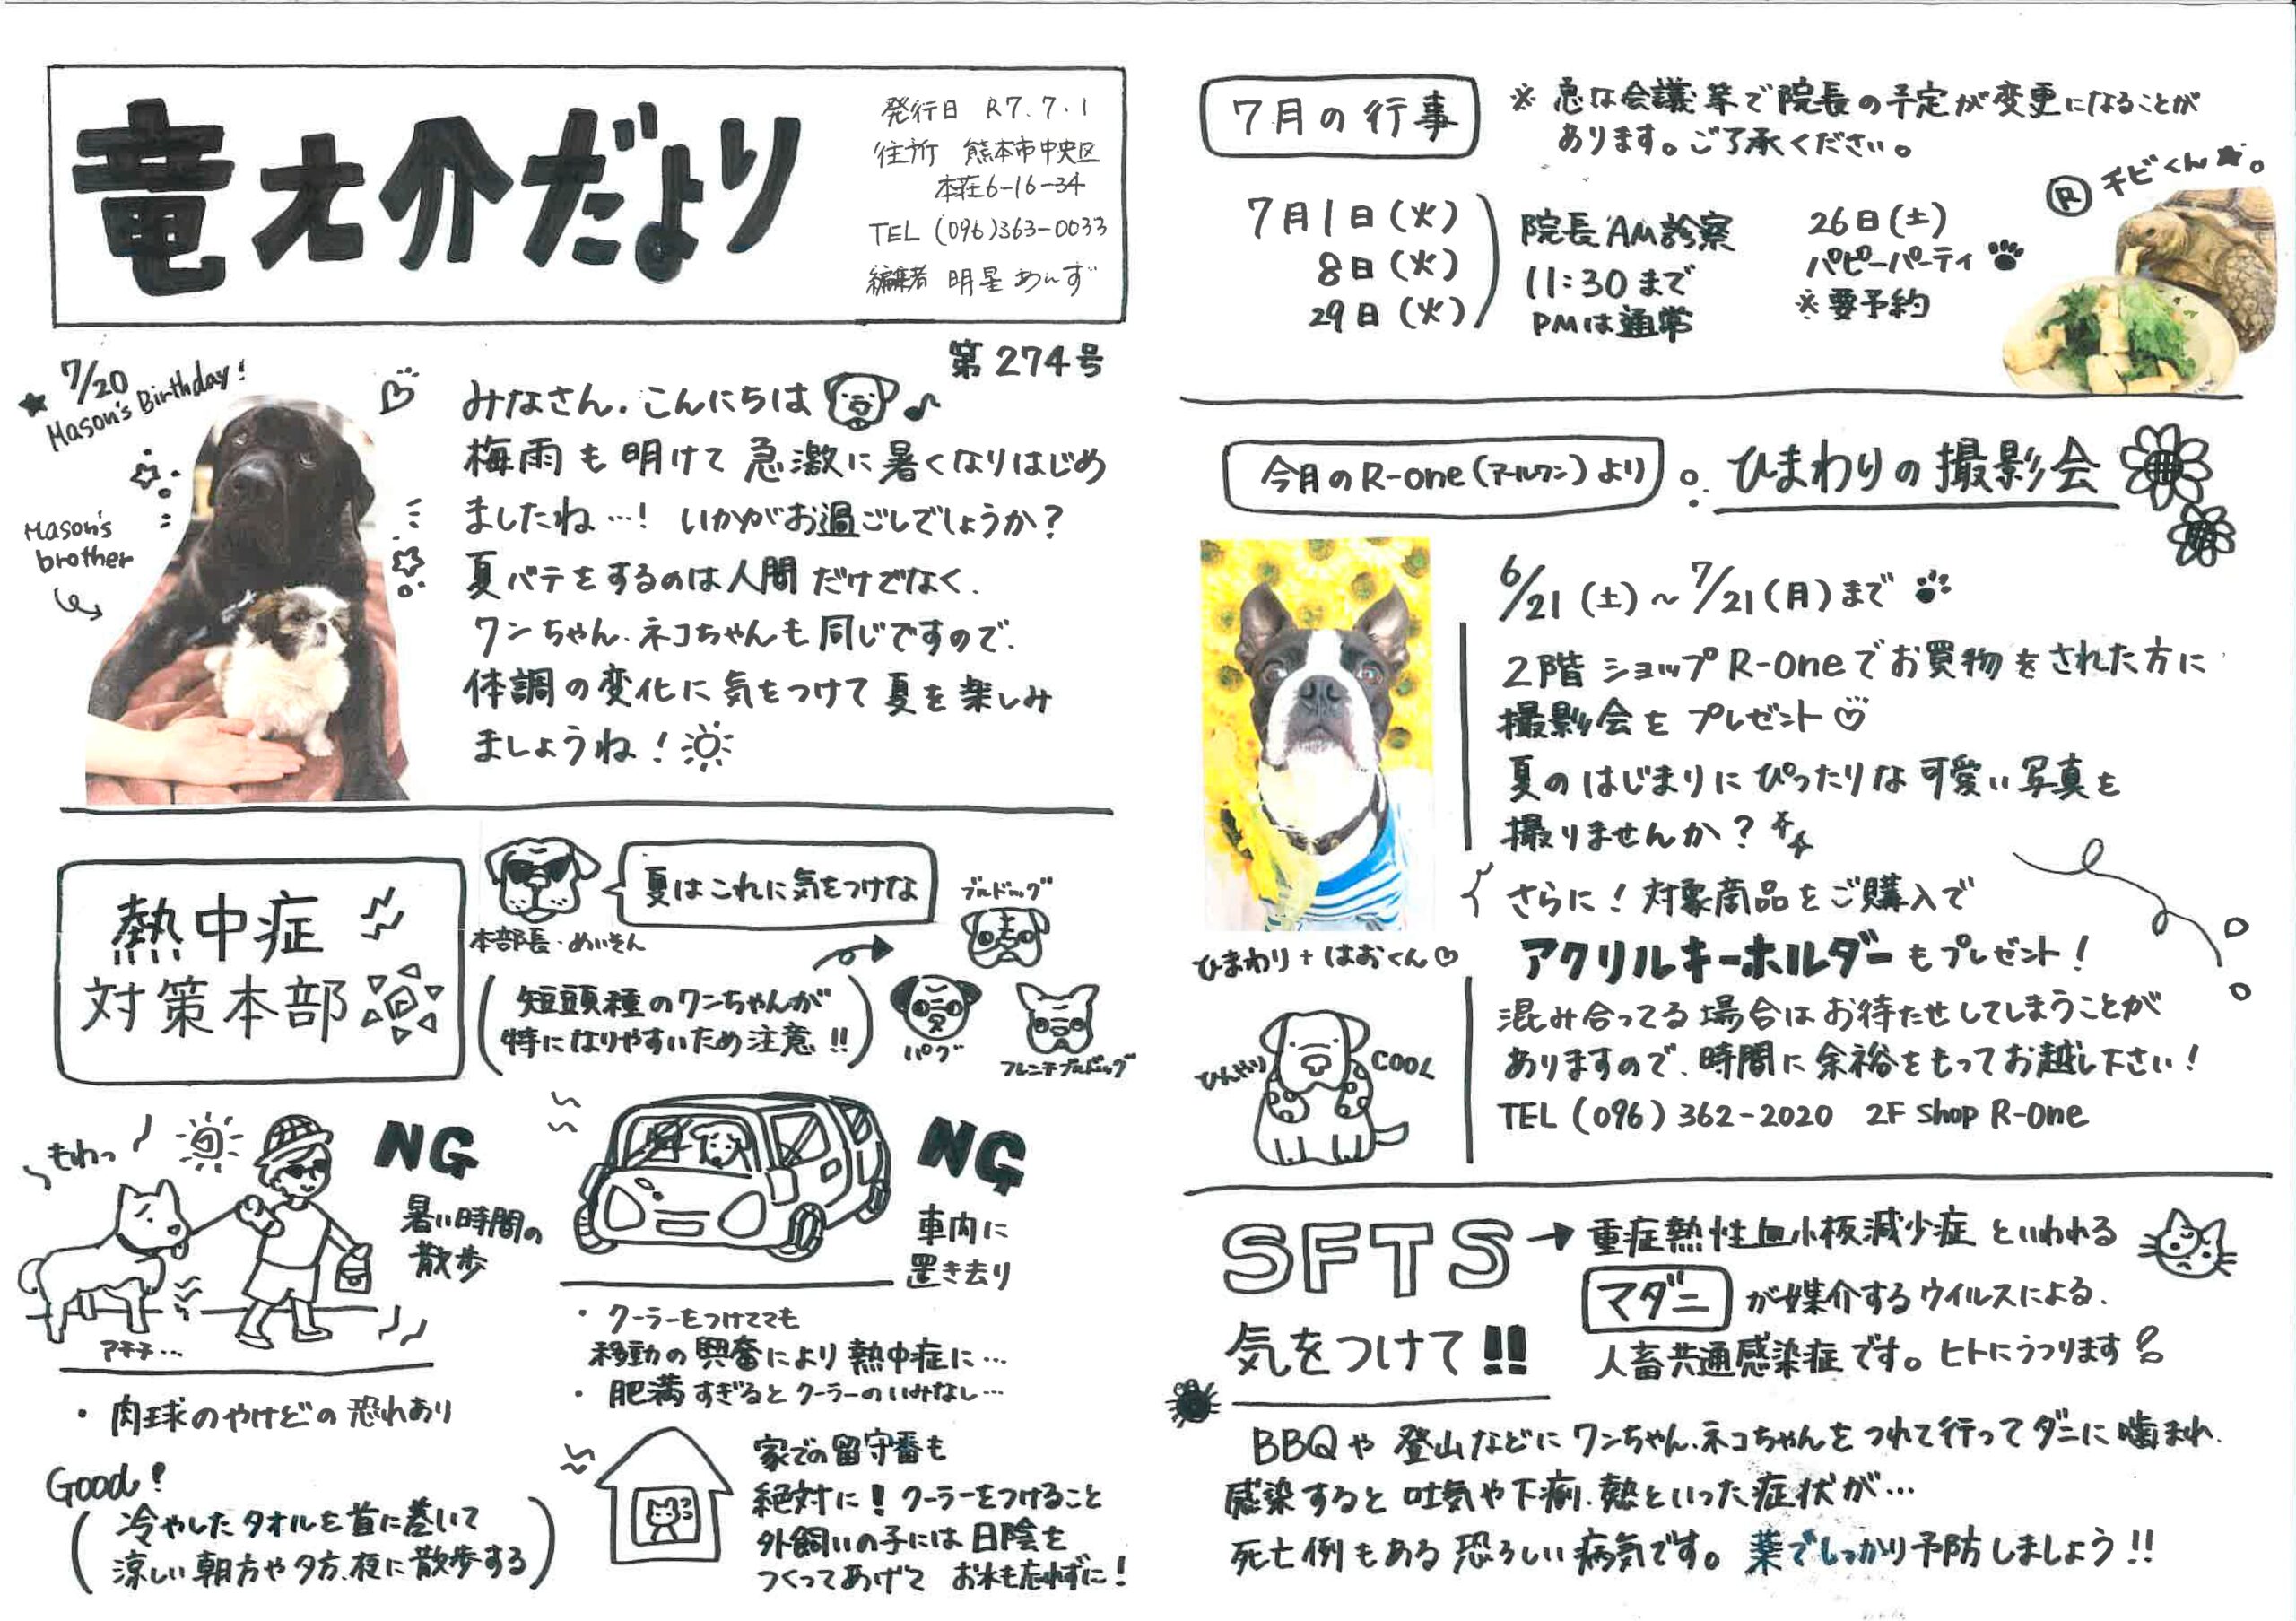 竜之介だより
発行日 R7.7.1
住所 熊本市中央区
本荘6-16-34
TEL (096)363-0033
編集者 明星 あんず
第274号
7/20
Mason's Birthday!
Mason's
brother
みなさん、こんにちは
梅雨も明けて急激に暑くなりはじめ
ましたね…! いかがお過ごしでしょうか?
夏バテをするのは人間だけでなく、
ワンちゃん、ネコちゃんも同じですので、
体調の変化に気をつけて夏を楽しみ
ましょうね!
熱中症
対策本部
夏はこれに気をつけな
本部長・めいそん
短頭種のワンちゃんが
特になりやすいため注意!!
ブルドッグ
パグ
フレンチブルドッグ
もわっ
NG
暑い時間の
散歩
アチチ…
・肉球のやけどの恐れあり
Good!
冷やしたタオルを首に巻いて
涼しい朝方や夕方、夜に散歩する
NG
車内に
置き去り
・クーラーをつけてても
移動の興奮により熱中症に…
・肥満すぎるとクーラーのいみなし…
家での留守番も
絶対に!クーラーをつけること
外飼いの子には日陰を
つくってあげて お水も忘れずに!
7月の行事
※急な会議等で院長の予定が変更になることが
あります。ご了承ください。
7月1日(火)
8日(火)
29日(火)
院長AM診察
11:30まで
PMは通常
26日(土)
パピーパーティ
※要予約
Ⓡチビくん★。
今月のR-one(アールワン)より
ひまわりの撮影会
6/21(土)~7/21(月)まで
2階ショップR-oneでお買物をされた方に
撮影会をプレゼント♡
夏のはじまりにぴったりな可愛い写真を
撮りませんか?
さらに!対象商品をご購入で
アクリルキーホルダーもプレゼント!
混み合ってる場合はお待たせしてしまうことが
ありますので、時間に余裕をもってお越し下さい!
TEL (096)362-2020 2F Shop R-One
ひまわり+はおくん♡
ひんやり
COOL
SFTS
気をつけて!!
→重症熱性血小板減少症といわれる
マダニが媒介するウイルスによる、
人畜共通感染症です。ヒトにうつります
BBQや登山などにワンちゃん、ネコちゃんをつれて行ってダニに噛まれ、
感染すると吐気や下痢、熱といった症状が…
死亡例もある恐ろしい病気です。薬でしっかり予防しましょう!!